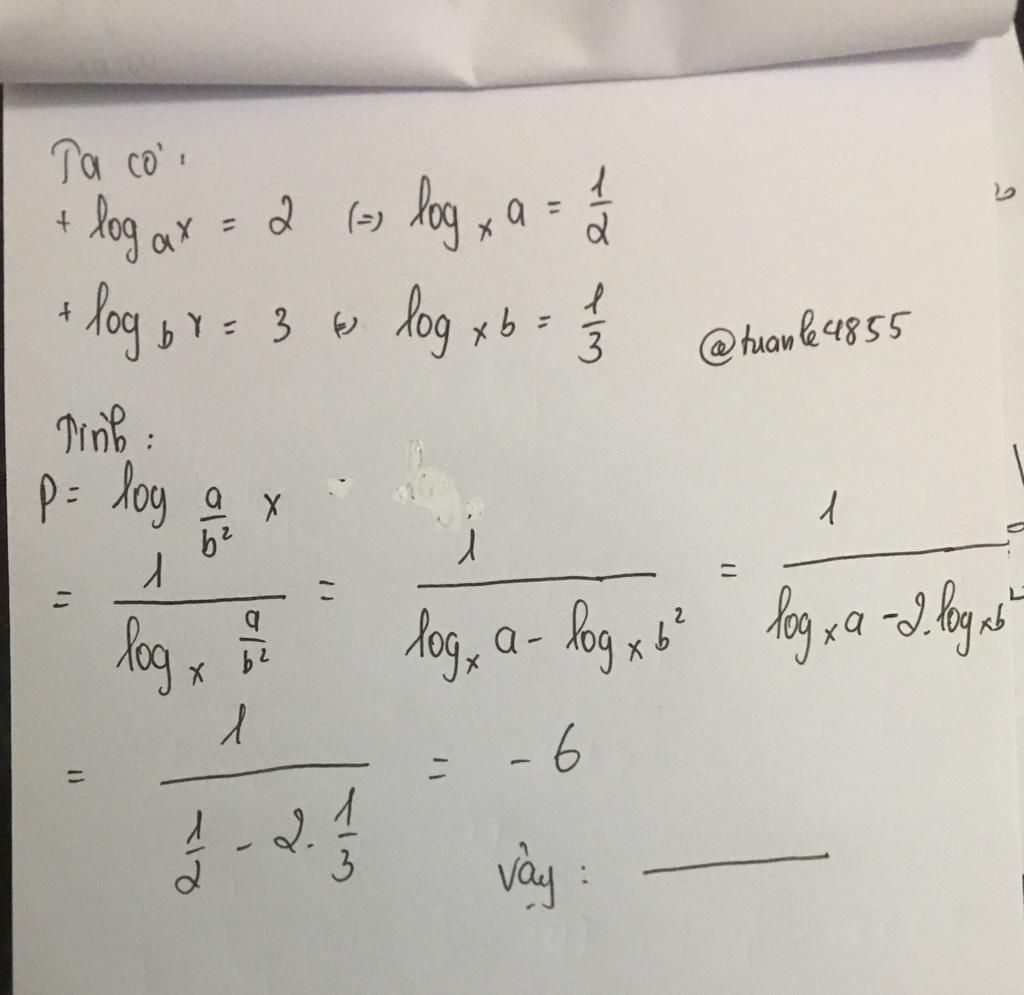 Ta có:
+ log_a x = 2 (=) log_x a = 1/2
+ log_b x = 3 (=) log_x b = 1/3
@tuanle4855
Tính:
P = log_{a/b²} x
= 1/(log_x a/b²) = 1/(log_x a - log_x b²) = 1/(log_x a - 2.log_x b²)
= 1/(1/2 - 2.1/3) = -6
Vậy: